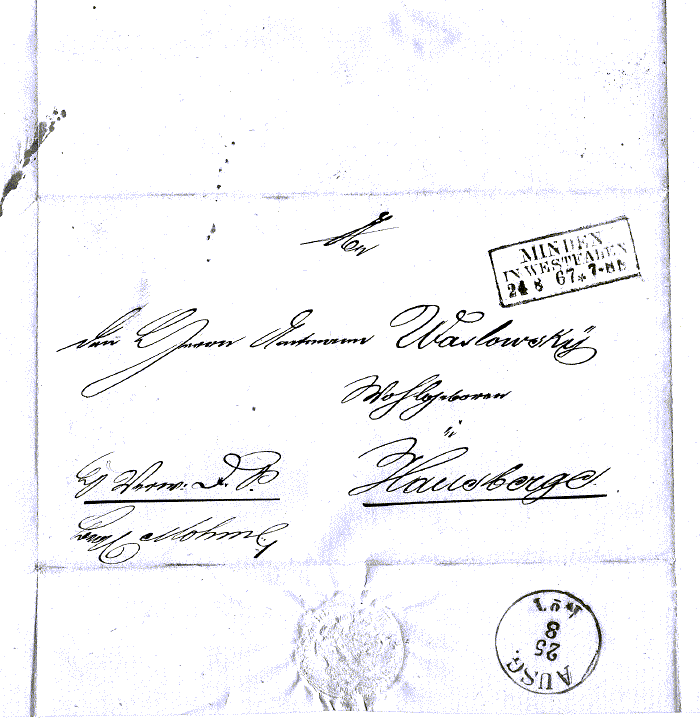 An
MINDEN
IN WESTFALEN
24 8 67 * 7-8
den Herrn Amtmann Waslowsky
Wohlgeboren
Hausberge
Verw: D. S.
AUSG.
25
8
N° 1